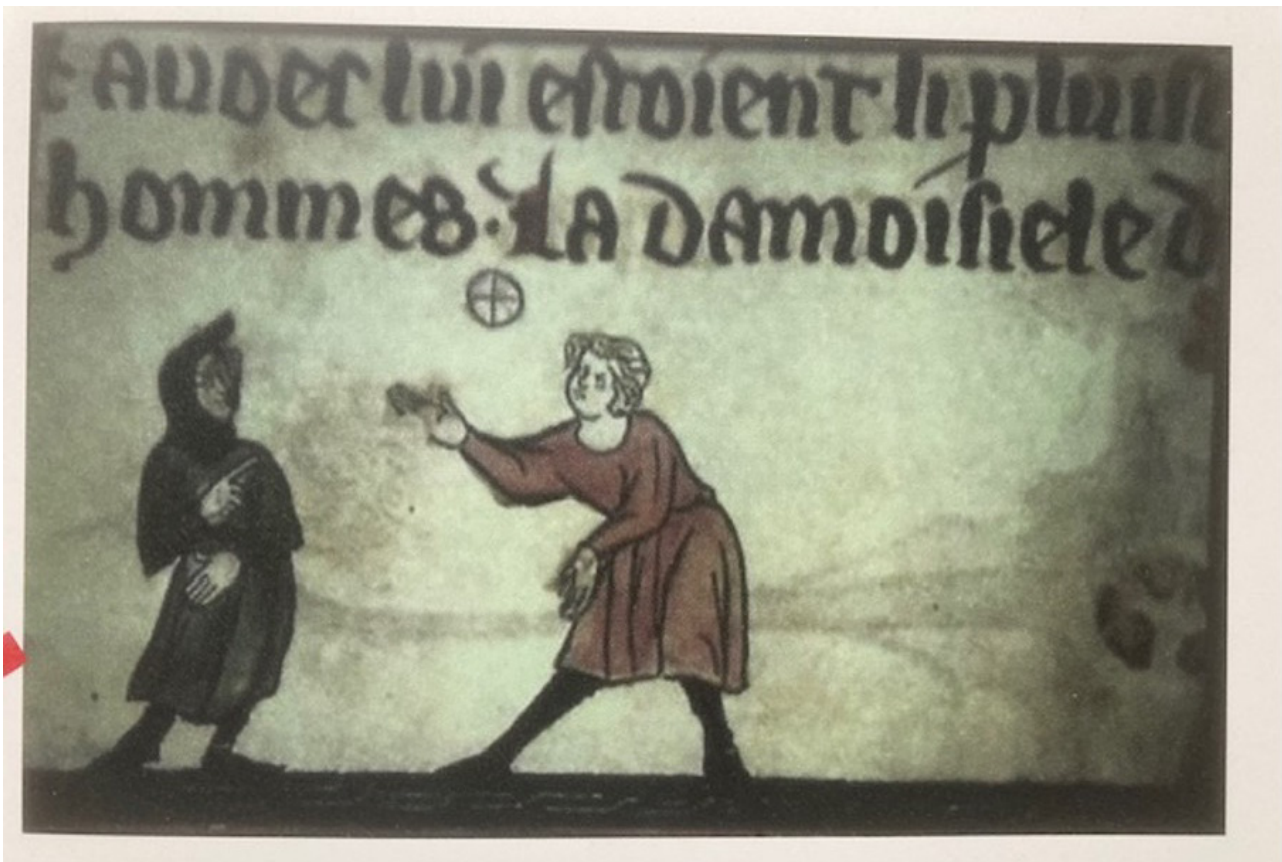 auoec lui estoient li pluis
hommes. La damoisiele d